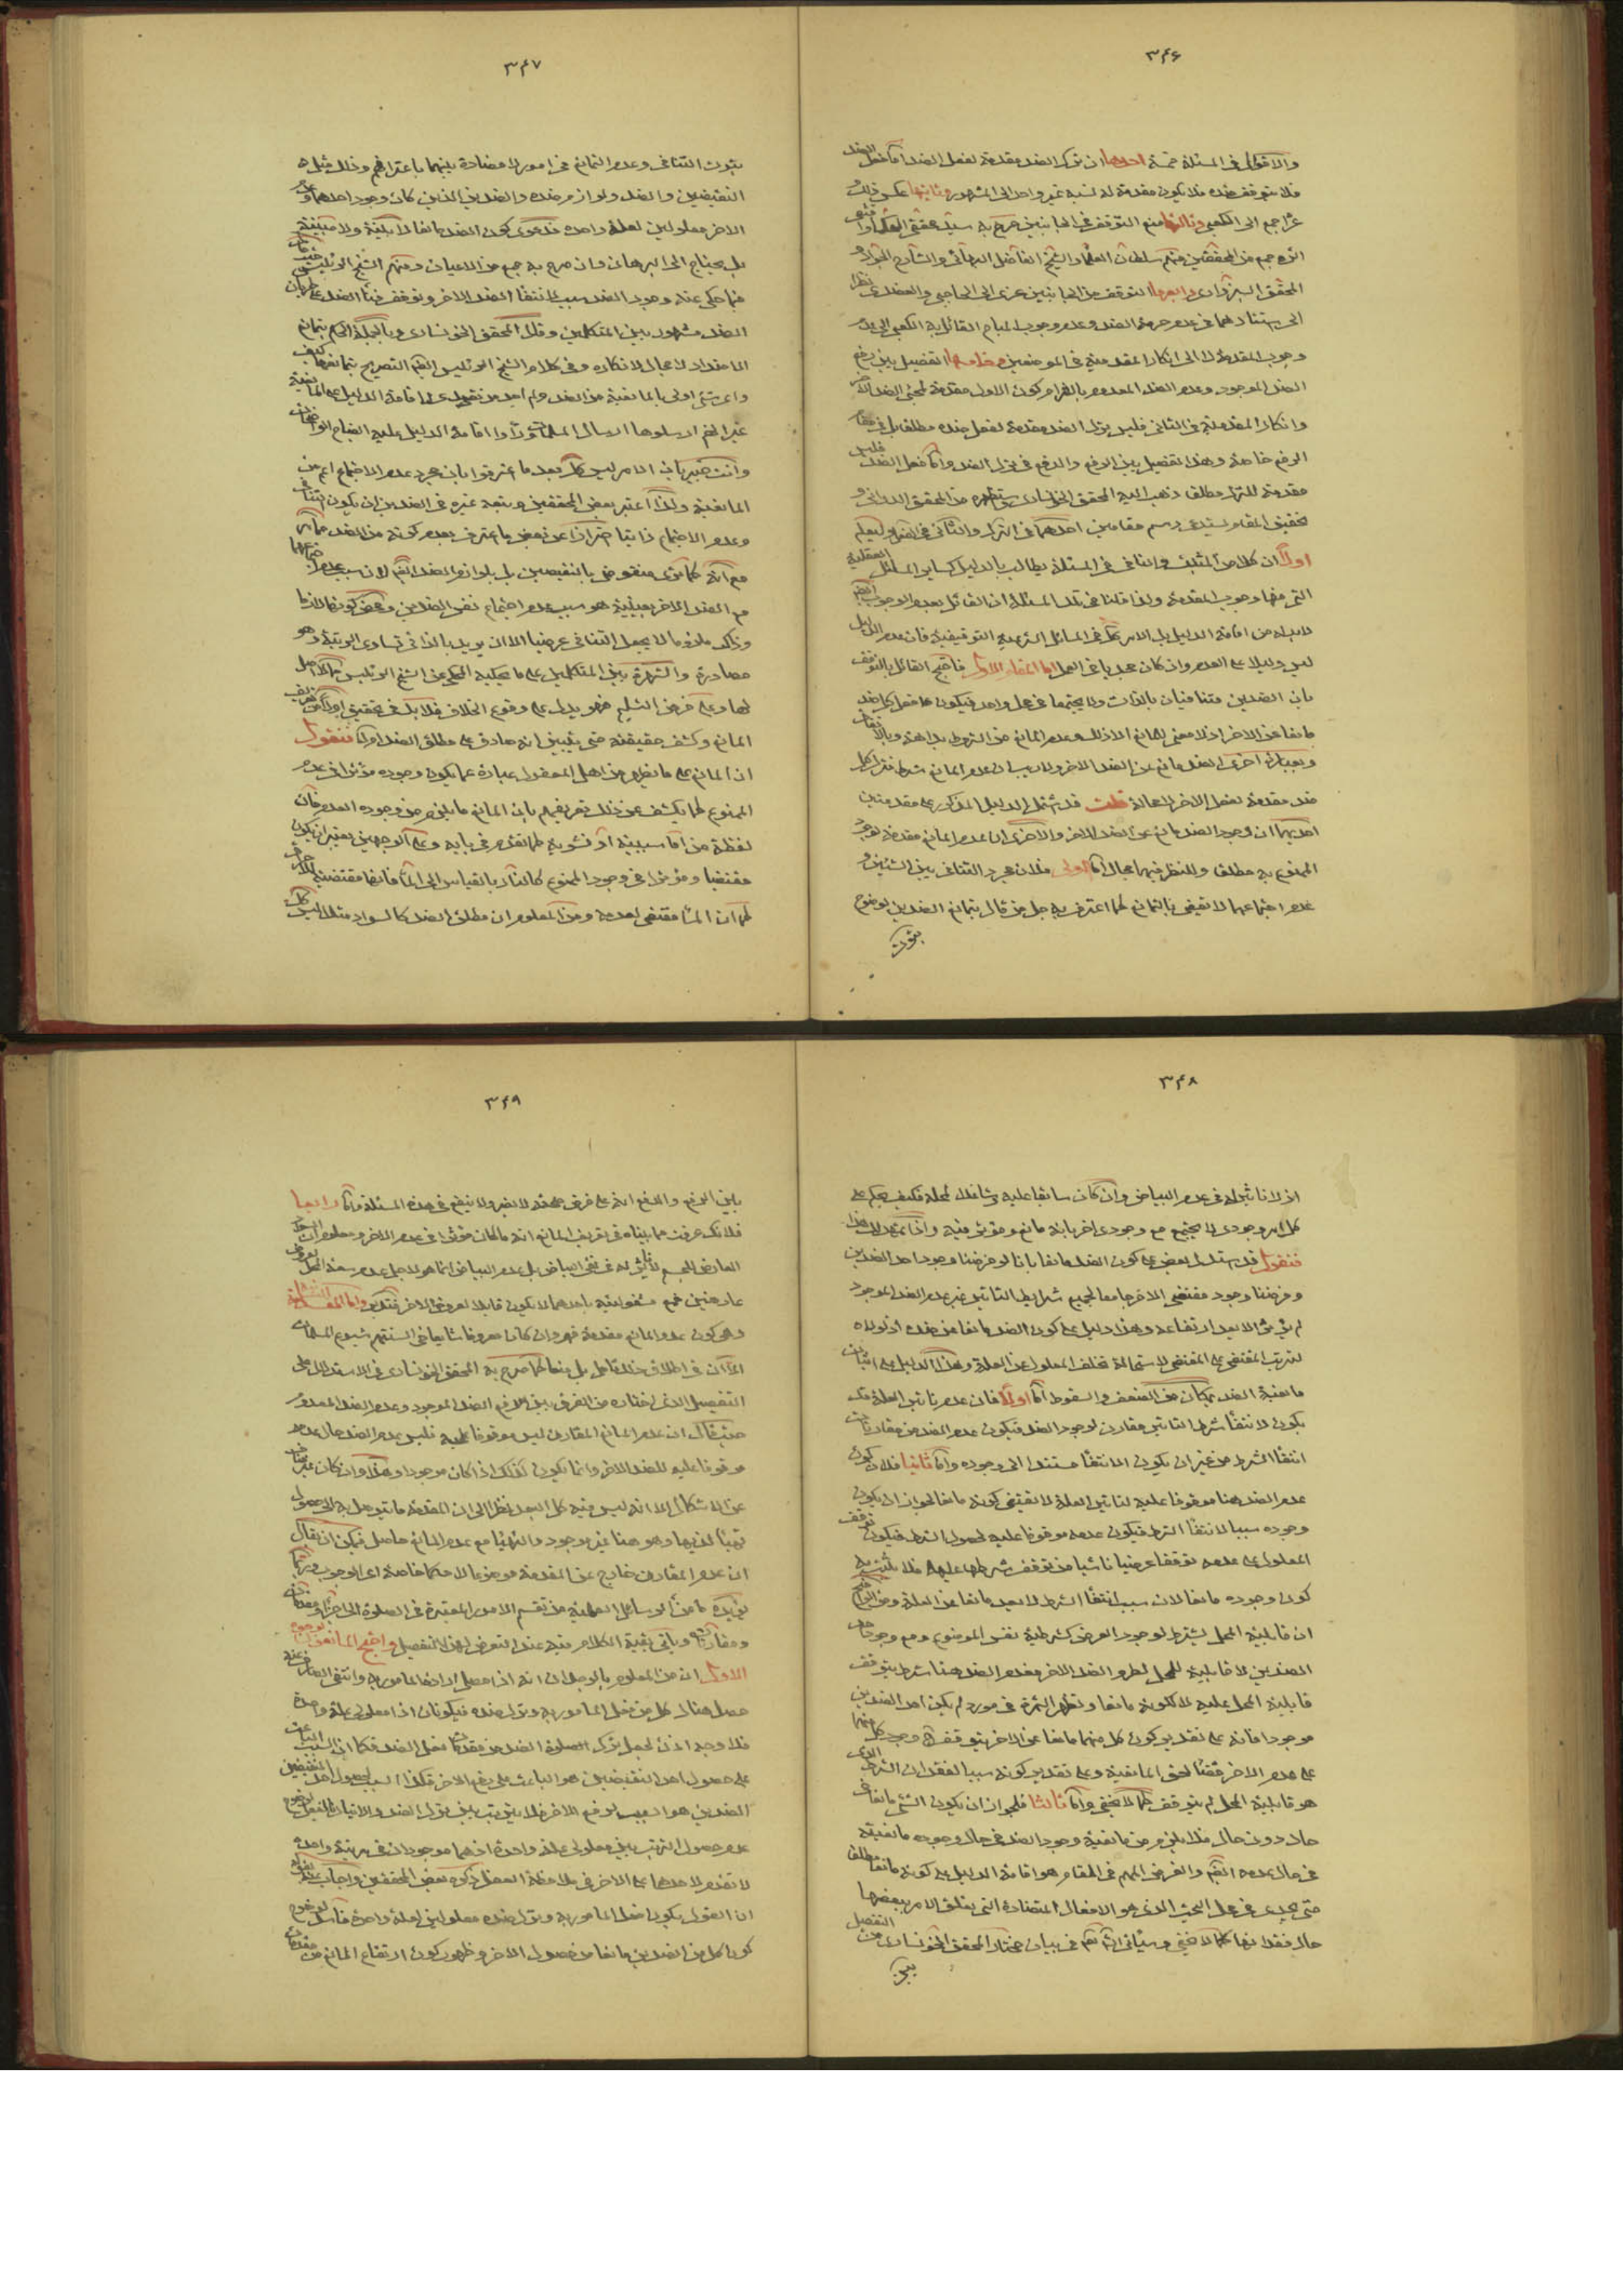 ٣٤۶
والاقوال في المسئلة خمسة احدها ان ترك الضد مقدمة لفعل الضد واما فعل الضد
فلا يتوقف ضده فلا يكون مقدمة له نسبه غير واحد الى المشهور وثانيها عكس ذلك
عزا جمع الى الكعبي وثالثها منع التوقف في الجانبين صرح به سيد محققي العلماء
اليه جمع من المحققين منهم سلطان العلماء والشيخ الفاضل البهائي والشارح الجواد و
المحقق السبزواري ورابعها التوقف من الجانبين عزى الى الحاجبي والعضدي نظرا
الى استنادهما في عدم حرمة الضد وعدم وجوب المباح القائل به الكعبي الى عدم
وجوب المقدمة لا الى انكار المقدمية في الموضعين وخامسها التفصيل بين رفع
الضد الموجود وعدم الضد المعدوم بالتزام كون الاول مقدمة لمجئ الضد الاخر
وانكار المقدمية في الثاني فليس ترك الضد مقدمة لفعل ضده مطلقا بل في
الرفع خاصة وهذا تفصيل بين الرفع والدفع في ترك الضد واما فعل الضد فليس
مقدمة للترك مطلقا ذهب اليه المحقق الخوانساري من المحقق الدواني و
تحقيق المقام يستدعي رسم مقامين احدهما في الترك والثاني في الفعل وليعلم
اولا ان كلا من المثبت والنافي في المسئلة يطالب بالدليل كساير المسائل العقلية
التي منها وجوب المقدمة ولذا قلنا في تلك المسئلة ان القائل بعدم الوجوب ايضا
لا بد له من اقامة الدليل بل الامر كك في المسائل الشرعية التوقيفية فان عدم الدليل
ليس دليلا على العدم وان كان مجديا في العمل اما المقام الاول فاحتج القائل بالتوقف
بان الضدين متنافيان بالذات ولا يجتمعا في محل واحد فيكون فعل كل ضد
مانعا عن الاخر اذ لا معنى للمانع الا ذلك وعدم المانع من الشروط بداهة
وبعبارة اخرى الضد مانع عن الضد الاخر ولا ريب ان عدم المانع شرط فترك كل
ضد مقدمة لفعل الاخر لا محالة قلت قد اشتمل الدليل المذكور على مقدمتين
احديهما ان وجود الضد مانع عن الضد الاخر والاخرى ان عدم المانع مقدمة لوجود
الممنوع به مطلقا وللنظر فيهما مجال اما الاولى فلان مجرد التنافي بين الشيئين و
عدم اجتماعهما لا يقضي بالتمانع كما اعترف به جل من قال بتمانع الضدين لوضوح
ثبوت
٣٤٧
ثبوت التنافي وعدم التمانع في امور لا مضادة بينهما باعترافهم وذلك مثل
النقيضين والضد ولوازم ضده والضدين الذين كان وجود احدهما
الاخر معلولين لعلة واحدة فدعوى كون الضد مانعا لا بينة ولا مبينة
بل يحتاج الى البرهان وان صرح به جمع من الاعيان ومنهم الشيخ الرئيس حيث قال
فيما حكي عنه وجود الضد سبب لانتفاء الضد الاخر وتوقف فناء الضد على طريان
الضد مشهور بين المتكلمين وقال المحقق الخونساري وبالجملة الحكم بتمانع
الاضداد لا مجال لانكاره وفي كلام الشيخ الرئيس ايضا التصريح بتمانعها كيف
واي شئ اولى بالمانعية من الضد ولم اجد من تصدى لاقامة الدليل على المانعية
غير انهم ارسلوها ارسال المسلمات
وانت خبير بان الامر ليس كك بعد ما اعترفوا بان مجرد عدم الاجتماع اعم من
المانعية ولذا اعتبر بعض المحققين وتبعه غيره في الضدين ان يكون التنافي
وعدم الاجتماع ذاتيا احترازا عن بعض ما اعترف بعدم كونه من الضد
مع انه كما ترى منقوض بالنقيضين بل بلوازم الضد ايضا لان سبب عدم اجتماعها
مع الضد الاخر بعينه هو سبب عدم اجتماع نفس الضدين ومحض كونها لازما
وذاك ملزوما لا يجعل التنافي عرضيا الا ان يريد بالذاتي تساوي الرتبة وهو
مصادرة والشهرة بين المتكلمين على ما يحكيه المحكي عن الشيخ الرئيس لا اصل
لها وعلى فرض التسليم فهو يدل على وقوع الخلاف فلا بد في تحقيق اولا من تعريف
المانع وكشف حقيقته حتى يتبين انه صادق على مطلق الضد اولا فنقول
ان المانع على ما يظهر من اهل المعقول عبارة عما يكون وجوده مؤثرا في عدم
الممنوع كما يكشف عن ذلك تعريفهم بان المانع ما يلزم من وجوده العدم فان
لفظة من اما سببية او نشوية كما تقدم في بابه وعلى الوجهين يعتبر ان يكون
مقتضيا ومؤثرا في وجود الممنوع كالنار بالقياس الى الماء فانها مقتضية
كما ان الماء مقتضي لعدمه ومن المعلوم ان مطلق الضد كالسواد مثلا ليس كك
٣٤٨
اذ لا تاثير له في عدم البياض وان كان سابقا عليه وشاغلا لمحله فكيف يحكم على
كل امر وجودي لا يجتمع مع وجودي اخر بانه مانع ومؤثر فيه واذا تمهد لك هذا
فنقول قد استدل بعض على كون الضد مانعا بانا لو فرضنا وجود احد الضدين
وفرضنا وجود مقتضي الاخر جامعا لجميع شرايط التاثير غير عدم الضد الموجود
لم يؤثر الا بعد ارتفاعه وهذا دليل على كون الضد مانعا من ضده اذ لولاه
لترتب المقتضي على المقتضي لاستحالة تخلف المعلول عن العلة وهذا الدليل على اثبات
مانعية الضد بمكان من الضعف والسقوط اما اولا فلان عدم تاثير العلة قد
يكون لانتفاء شرط التاثير مقارن لوجود الضد فيكون عدم الضد من مقارنات
انتفاء الشرط من غير ان يكون الانتفاء مستندا الى وجوده واما ثانيا فلان كون
عدم الضد هنا موقوفا عليه لتاثير العلة لا يقتضي كونه مانعا لجواز ان يكون
وجوده سببا لانتفاء الشرط فيكون عدمه موقوفا عليه لحصول الشرط فيكون توقف
المعلول على عدمه توقفا عرضيا ناشيا من توقف شرطها عليه فلا يثبت به
كون وجوده مانعا لان سبب انتفاء الشرط لا يعد مانعا عن العلة ومن الواضح
ان قابلية المحل يشترط لوجود العرض كشرطية نفس الموضوع ومع وجود احد
الضدين لا قابلية للمحل لطرو الضد الاخر فعدم الضد هنا شرط يتوقف
قابلية المحل عليه لا لكونه مانعا وتظهر الثمرة في مورد لم يكن احد الضدين
موجودا فانه على تقدير كون كل منهما مانعا عن الاخر يتوقف وجود كل منهما
على عدم الاخر قضاء لحق المانعية وعلى تقدير كونه سببا لفقدان الشرط الذي
هو قابلية المحل لم يتوقف كما لا يخفى واما ثالثا فلجواز ان يكون الشئ مانعا في
حال دون حال فلا يلزم من مانعية وجود الضد في حال وجوده مانعيته
في حال عدمه ايضا والغرض المهم في المقام هو اقامة الدليل على كونه مانعا مطلقا
حتى يجدي في محل البحث الذي هو الافعال المتضادة التي يتعلق الامر ببعضها
حال فقدانها كما لا يخفى وسياتي انشاء الله في بيان مختار المحقق الخونساري من التفصيل
بين
٣٤٩
بين الرفع والدفع انه على فرض صحته لا يضر ولا ينفع في هذه المسئلة واما رابعا
فلانك عرفت مما بيناه في تعريف المانع انه ما كان مؤثرا في عدم الاخر ومعلوم ان السواد
العارض للجسم لا تاثير له في نفي البياض بل عدم البياض انما هو لاجل عدم سعة المحل لعروض
عارضين فمع مشغوليته باحدهما لا يكون قابلا لعروض الاخر فتدبر واما المقدمة الثانية
وهي كون عدم المانع مقدمة فهو وان كان معروفا شايعا في السنتهم شيوع المسلمات
الا ان في اطلاق ذلك تاملا بل منعا كما صرح به المحقق الخونساري في الاستدلال على
التفصيل الذي اختاره من الفرق بين رفع الضد الموجود وعدم الضد المعدوم
حيث قال ان عدم المانع المقارن ليس موقوفا عليه فليس عدم الضد حال عدمه
موقوفا عليه للضد الاخر وانما يكون كذلك اذا كان موجودا وهذا وان كان غير خال
عن الاشكال الا انه ليس فيه كل البعد نظرا الى ان المقدمة ما يتوصل به الى حصول
تهيأ لذيها وهو هنا غير موجود والتهيأ مع عدم المانع حاصل فيمكن ان يقال
ان عدم المقارن خارج عن المقدمة موضوعا لا حكما خاصة اعني الوجوب
يؤيده ما من الوسائل العلمية من تقسيم الامور المعتبرة في الصلوة الى اجزاء ومقدمات
ومقارنات وياتي بقية الكلام فيه عند التعرض لهذا التفصيل واحتج المانعون بوجوه
الاول ان من المعلوم بالوجدان انه اذا حصل ارادة المامور به وانتفى الصارف عنه
حصل هناك كل من فعل المامور به وترك ضده فيكونان اذا معلولي علة واحدة
فلا وجه اذن لجعل ترك الضد من مقدمات فعل الضد فكما ان السبب الباعث
على حصول احد النقيضين هو الباعث على رفع الاخر فكذا السبب لحصول احد
الضدين هو السبب لرفع الاخر فلا ترتب بين ترك الضد والاتيان بالفعل لوضوح
عدم حصول الترتب بين معلولي علة واحدة اذ هما موجودان في مرتبة واحدة
لا تقدم لاحدهما على الاخر في ملاحظة العقل ذكره بعض المحققين واجاب عنه
ان القول بكون فعل المامور به وترك ضده معلولين لعلة واحدة فاسد لوضوح
كون كل من الضدين مانعا من حصول الاخر وظهور كون ارتفاع المانع من مقدمات